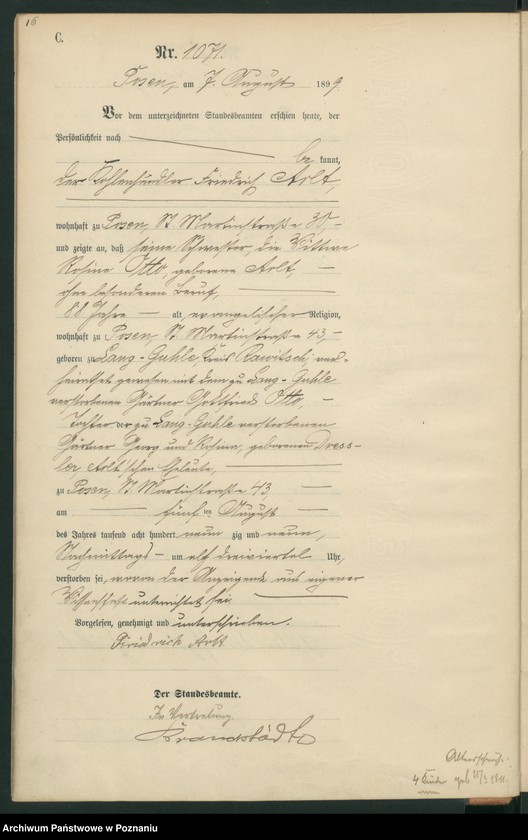 16
C.
Nr. 1071.
Posen, am 7. August 1899.
Vor dem unterzeichneten Standesbeamten erschien heute, der
Persönlichkeit nach
be kannt,
der Kohlenhändler Friedrich Arlt,
wohnhaft zu Posen, St. Martinstraße 30,
und zeigte an, daß seine Schwester, die Wittwe
Rosine Otto, geborene Arlt,
ohne besonderen Beruf,
88 Jahre alt, evangelischer Religion,
wohnhaft zu Posen, St. Martinstraße 43,
geboren zu Lang-Guhle, Kreis Rawitsch, ver-
heirathet gewesen mit dem zu Lang-Guhle
verstorbenen Gärtner Gottfried Otto,
Tochter der zu Lang-Guhle verstorbenen
Gärtner Georg und Rosina, geborenen Dress-
ler, Arlt'schen Eheleute,
zu Posen, St. Martinstraße 43,
am fünf ten August
des Jahres tausend acht hundert neun zig und neun,
Nachmittags um elf dreiviertel Uhr,
verstorben sei, wovon der Anzeigende aus eigener
Wissenschaft unterrichtet sei.
Vorgelesen, genehmigt und unterschrieben.
Friedrich Arlt
Der Standesbeamte.
In Vertretung.
Brandstädt
4 Kinder geb
Archiwum Państwowe w Poznaniu